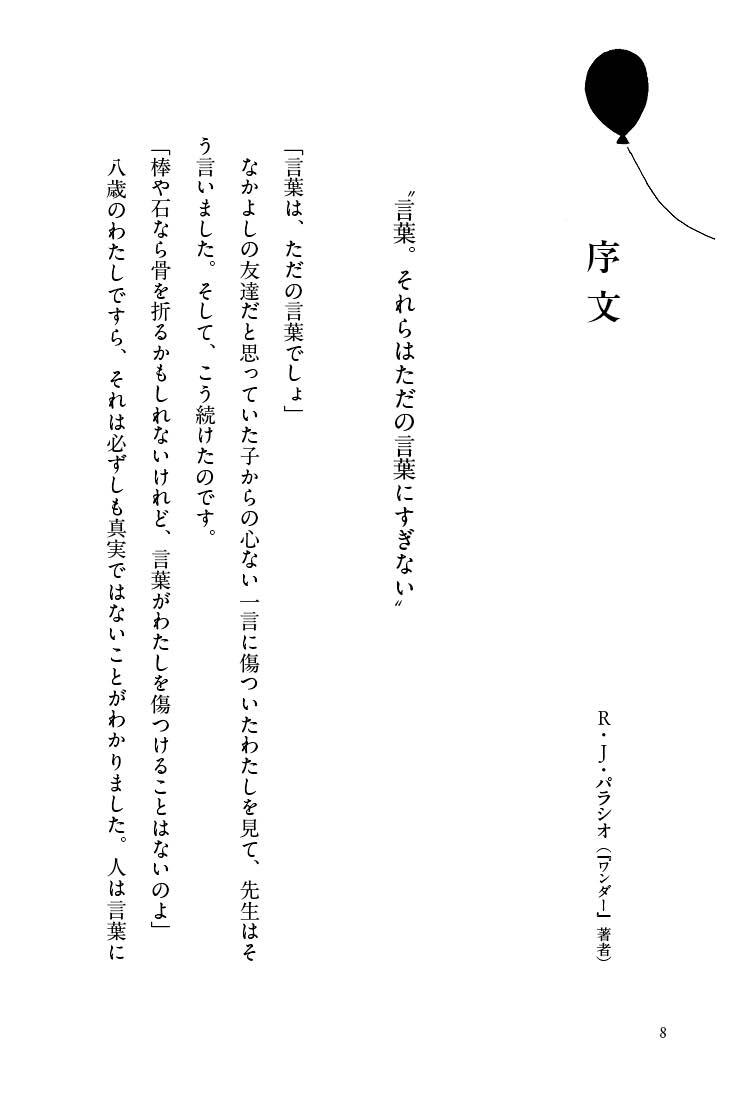 序文
R・J・パラシオ（『ワンダー』著者）
〝言葉。それらはただの言葉にすぎない〟
「言葉は、ただの言葉でしょ」
なかよしの友達だと思っていた子からの心ない一言に傷ついたわたしを見て、先生はそ
う言いました。そして、こう続けたのです。
「棒や石なら骨を折るかもしれないけれど、言葉がわたしを傷つけることはないのよ」
八歳のわたしですら、それは必ずしも真実ではないことがわかりました。人は言葉に
8